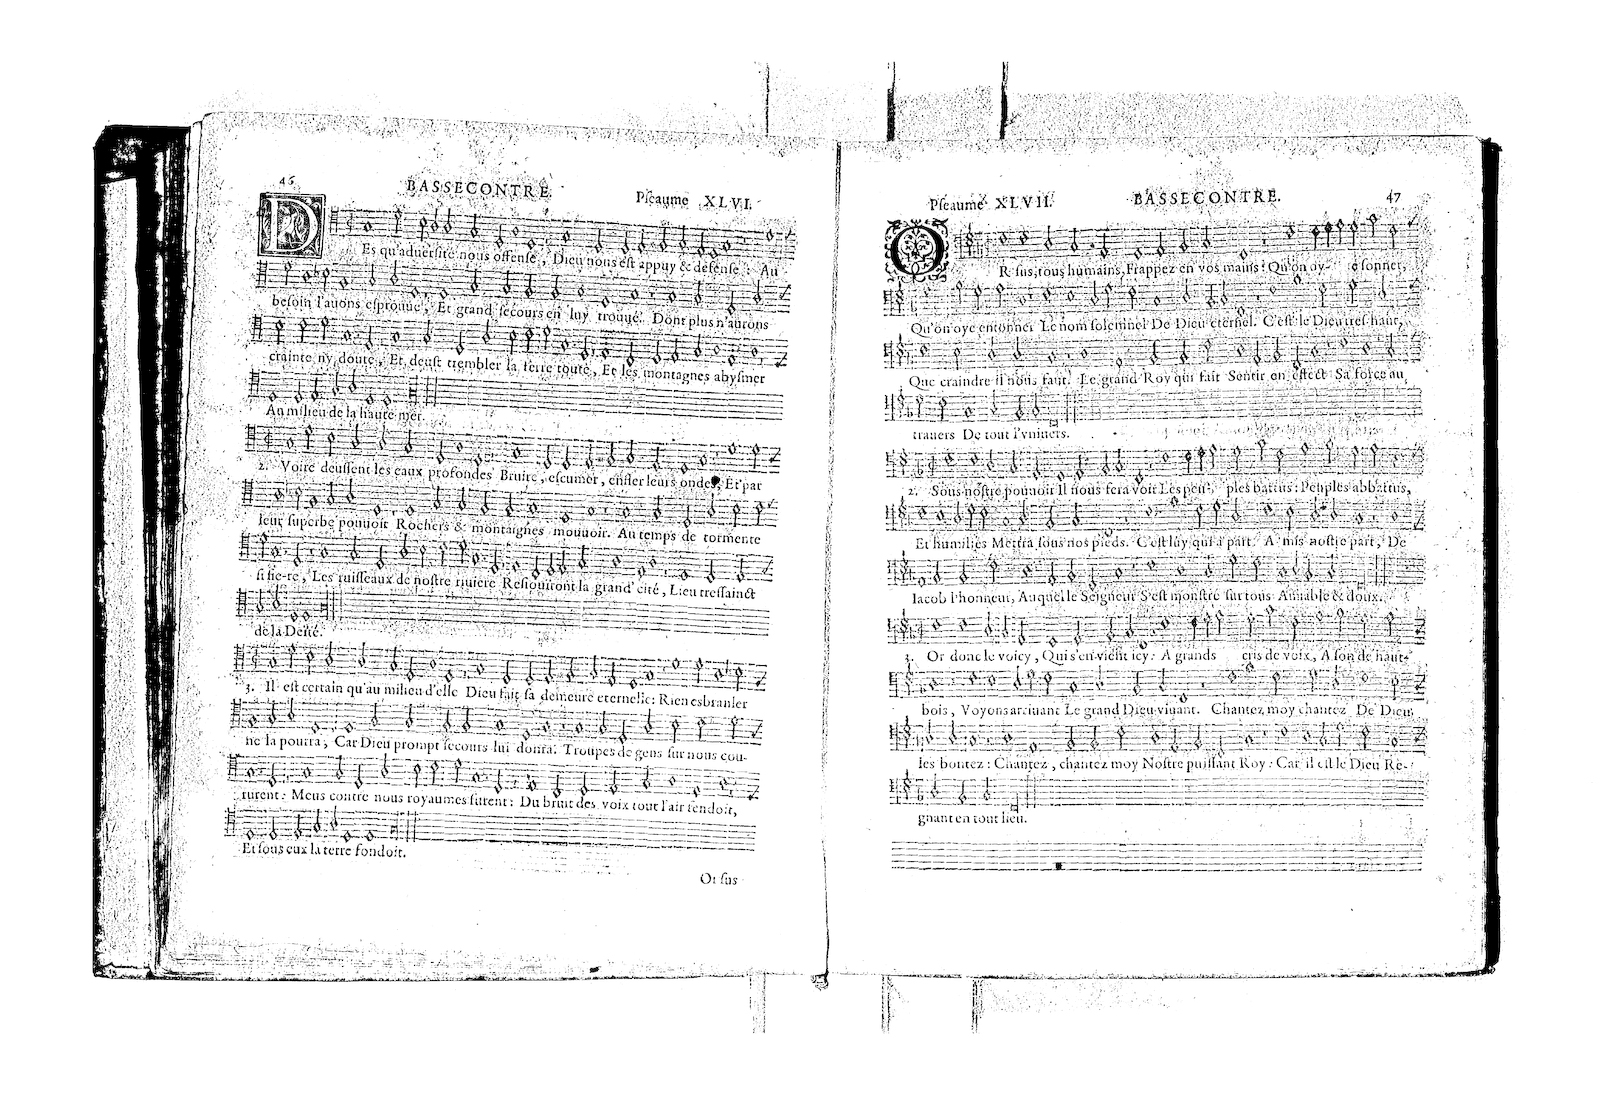 46
BASSECONTRE.
Pſeaume XLVI.
DEs qu'aduerſité nous offenſe, Dieu nous eſt appuy & defenſe: Au
beſoin l'auons eſprouué, Et grand ſecours en luy trouué. Dont plus n'aurons
crainte ny doute, Et deuſt trembler la terre toute, Et les montagnes abyſmer
Au milieu de la haute mer.
2. Voire deuſſent les eaux profondes Bruire, eſcumer, enfler leurs ondes, Et par
leur ſuperbe pouuoir Rochers & montaignes mouuoir. Au temps de tormente
ſi fie-re, Les ruiſſeaux de noſtre riuiere Reſiouïront la grand' cité, Lieu treſſainct
de la Deité.
3. Il eſt certain qu'au milieu d'elle Dieu fait ſa demeure eternelle: Rien esbranler
ne la pourra, Car Dieu prompt ſecours lui donra. Troupes de gens ſur nous cou-
rurent: Meus contre nous royaumes furent: Du bruit des voix tout l'air fendoit,
Et ſous eux la terre fondoit.
Or ſus
Pſeaume XLVII.
BASSECONTRE.
47
OR ſus, tous humains, Frappez en vos mains: Qu'on oy- e ſonner,
Qu'on oye entonner Le nom ſolemnel De Dieu eternel. C'eſt le Dieu tres-haut,
Que craindre il nous faut: Le grand Roy qui fait Sentir en effect Sa force au
trauers De tout l'vniuers.
2. Sous noſtre pouuoir Il nous fera voir Les peu- ples battus: Peuples abbattus,
Et humiliés Mettra ſous nos pieds. C'eſt luy qui à part A mis noſtre part, De
Iacob l'honneur, Auquel le Seigneur S'eſt monſtré ſur tous Amiable & doux.
3. Or donc le voicy, Qui s'en vient icy: A grands cris de voix, A ſon de haut-
bois, Voyons arriuant Le grand Dieu viuant. Chantez moy chantez De Dieu
les bontez: Chantez, chantez moy Noſtre puiſſant Roy: Car il eſt le Dieu Re-
gnant en tout lieu.